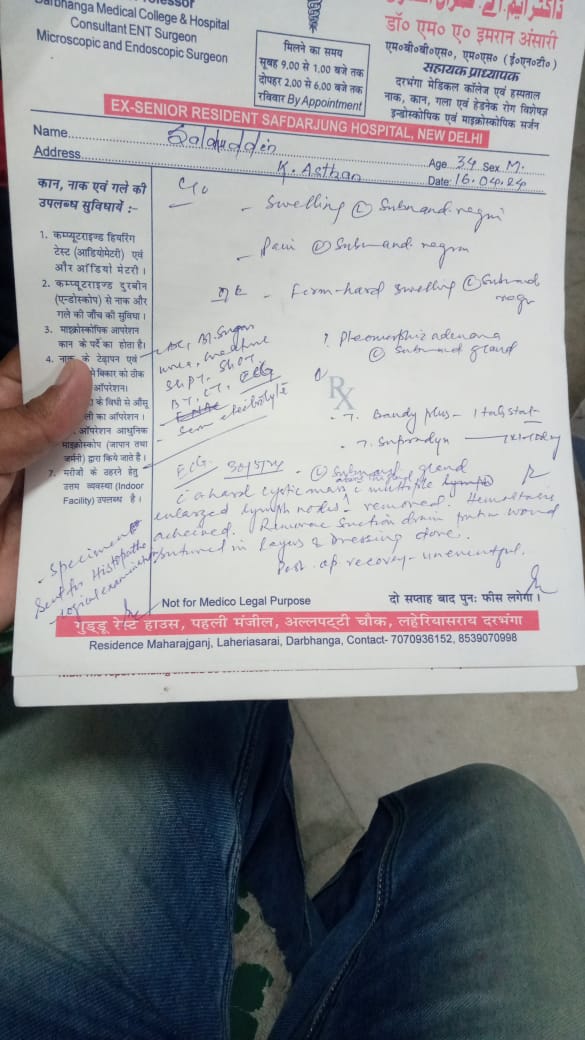 Professor
Darbhanga Medical College & Hospital
Consultant ENT Surgeon
Microscopic and Endoscopic Surgeon
मिलने का समय
सुबह 9.00 से 1.00 बजे तक
दोपहर 2.00 से 6.00 बजे तक
रविवार By Appointment
डॉ० एम० ए० इमरान अंसारी
एम०बी०बी०एस०, एम०एस० (ई०एन०टी०)
सहायक प्राध्यापक
दरभंगा मेडिकल कॉलेज एवं हस्पताल
नाक, कान, गला एवं हेडनेक रोग विशेषज्ञ
इन्डोस्कोपिक एवं माइक्रोस्कोपिक सर्जन
EX-SENIOR RESIDENT SAFDARJUNG HOSPITAL, NEW DELHI
Name
Address K. Asthan
Age 34 Sex M.
Date 16.04.24
कान, नाक एवं गले की
उपलब्ध सुविधायें :-
1. कम्प्यूटराइज्ड हियरिंग
टेस्ट (आडियोमेटरी) एवं
और आंडियो मेटरी ।
2. कम्प्यूटराइज्ड दुरबीन
(एन्डोस्कोप) से नाक और
गले की जाँच की सुविधा ।
3. माइक्रोस्कोपिक आपरेशन
कान के पर्दे का होता है।
4. नाक के टेढ़ापन एवं
बिकार को ठीक
ऑपरेशन।
के विधी से आँसू
ली का आँपरेशन ।
ऑपरेशन आधुनिक
माइक्रोस्कोप (जापान तथा
जर्मनी) द्वारा किये जाते है ।
7. मरीजों के ठहरने हेतु
उत्तम व्यवस्था (Indoor
Facility) उपलब्ध है ।
C/o
- Swelling (L) Submand. region
- Pain (L) Submand. region
O/E - Firm-hard swelling (L) Submand
region
Bl. Sugar
SGPT
BT, CT, ECG
- Serum electrolyte
? Pleomorphic adenoma
(L) Submand gland
Rx
- T. Bandy plus - 1 tab stat
- T. Supradyn
(L) Submand gland
hard cystic mass multiple
enlarged lymph nodes - removed. Hemostasis
acheived. Romovac Suction drain put in wound
sutured in layers & Dressing done.
Post op recovery - uneventful.
- Specimen
Sent for Histopatho
-logical examination
Not for Medico Legal Purpose
दो सप्ताह बाद पुनः फीस लगेगा ।
गुड्डू रेस्ट हाउस, पहली मंजील, अल्लपट्टी चौक, लहेरियासराय दरभंगा
Residence Maharajganj, Laheriasarai, Darbhanga, Contact- 7070936152, 8539070998